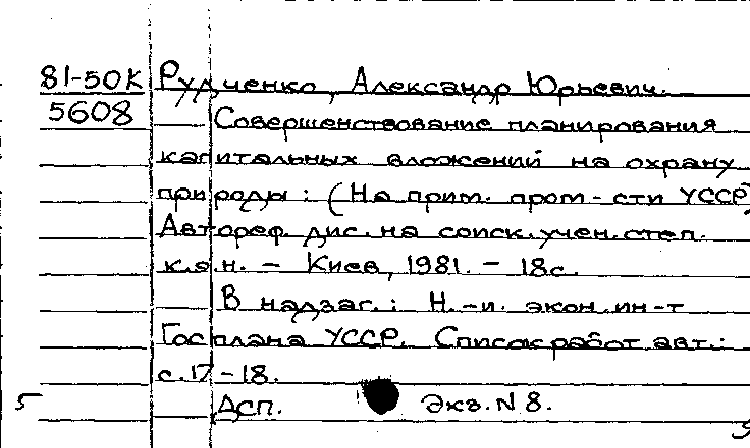 81-50К Рудченко, Александр Юрьевич.
5608 Совершенствование планирования
капитальных вложений на охрану
природы : (На прим. пром-сти УССР)
Автореф. дис. на соиск. учен. степ.
к.э.н. - Киев, 1981. - 18с.
В надзаг.: Н.-и. экон. ин-т
Госплана УССР. Список работ авт.:
с.17-18.
5 ДСП. Экз. N 8.